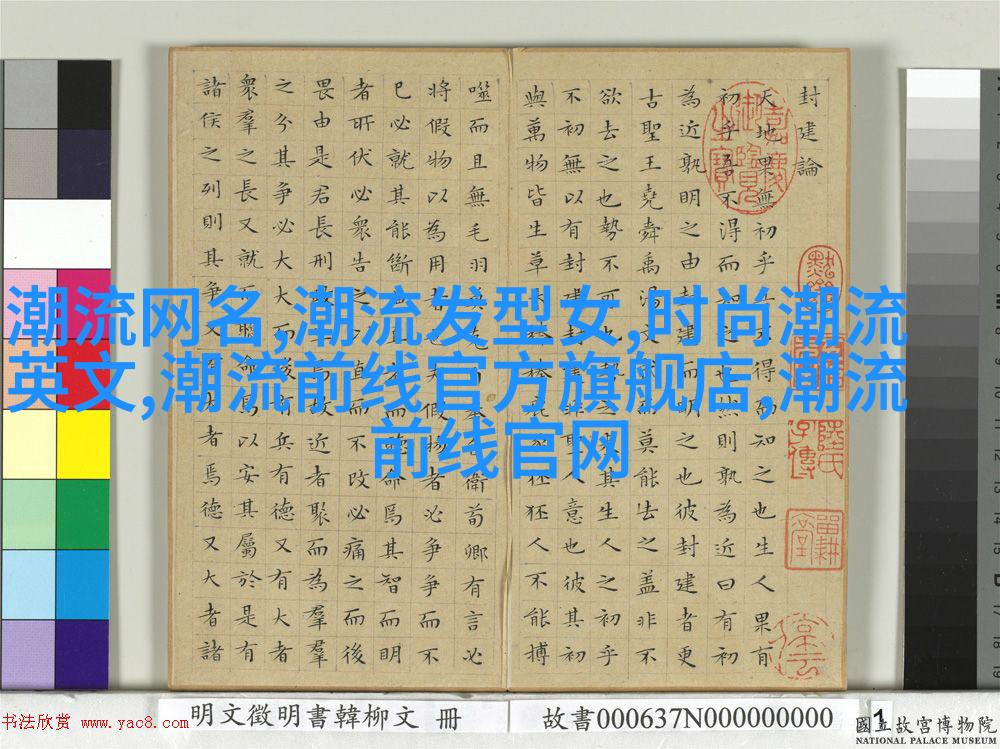 封建論
天地果無初乎吾不得而知之也生人果有
初乎吾不得而知之也然則孰為近曰有初
為近孰明之由封建而明之也彼封建者更
古聖王堯舜禹湯文武而莫能去之蓋非不
欲去之也勢不可也勢之來其生人之初乎
不初無以有封建封建非聖人意也彼其初
與萬物皆生草木榛榛鹿豕狉狉人不能搏
噬而且無毛羽莫克自奉自衛荀卿有言必
將假物以為用者也夫假物者必爭爭而不
已必就其能斷曲直者而聽命焉其智而明
者所伏必衆告之以直而不改必痛之而後
畏由是君長刑政生焉故近者聚而為羣
之分其爭必大大而後有兵有德又有大者
衆羣之長又就而聽命焉以安其屬於是有
諸侯之列則其爭又有大者焉德又大者諸
潮流网名,潮流发型女,时尚潮流
英文,潮流前线官方旗舰店,潮流
前线官网
书法欣赏 www.yac8.com
明文徵明書韓柳文 冊
故書000637N000000000
1
國立故宮博物院
NATIONAL PALACE MUSEUM